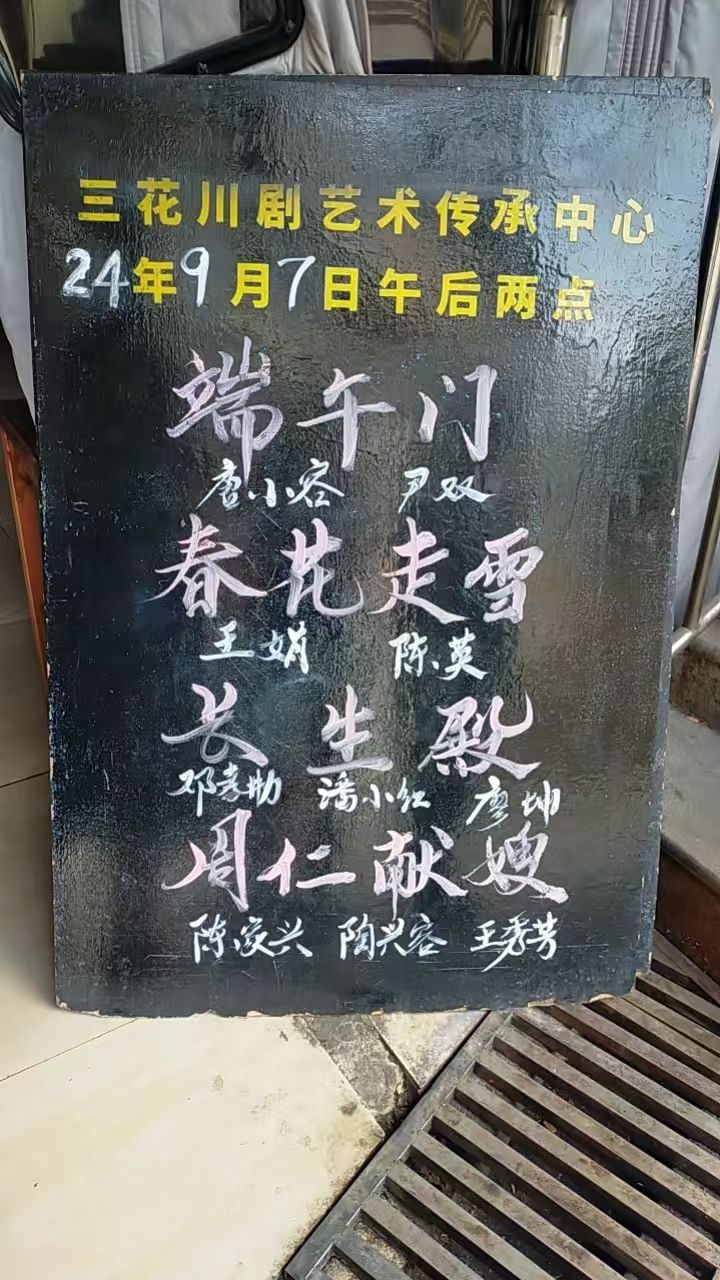 三花川剧艺术传承中心
24年9月7日午后两点
端午门
唐小容 尹双
春花走雪
王娟 陈英
长生殿
邓孝勋 潘小红 廖坤
周仁献嫂
陈家兴 陶兴容 王秀芳